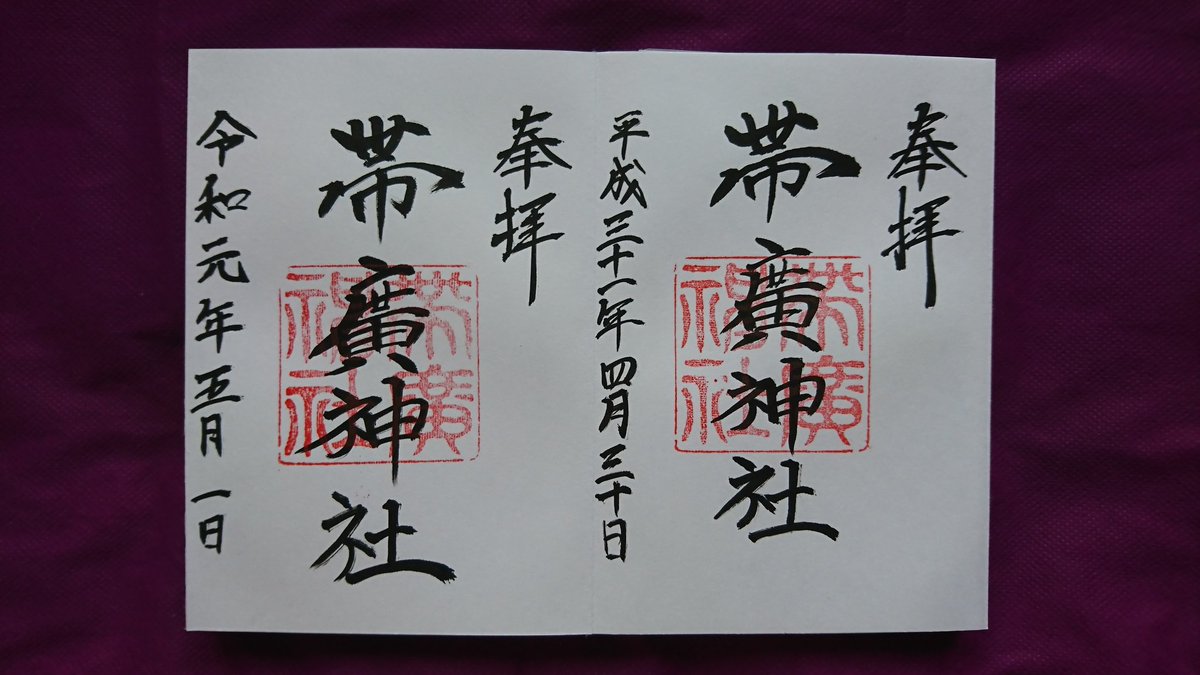 奉拝
帯廣神社
帯廣神社
平成三十一年四月三十日
奉拝
帯廣神社
帯廣神社
令和元年五月一日